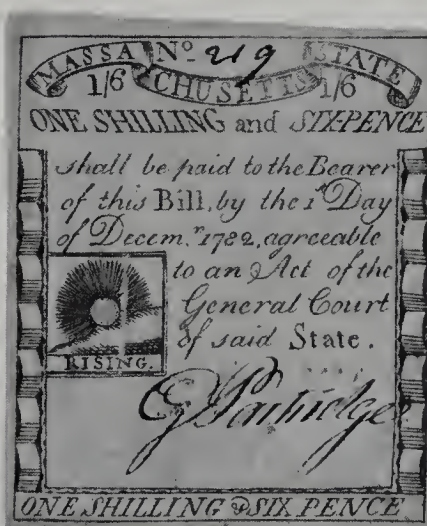 MASSACHUSETTS STATE
No 219
1/6 1/6
ONE SHILLING and SIX-PENCE
shall be paid to the Bearer
of this Bill, by the 1st Day
of Decem.r 1782, agreeable
to an Act of the
General Court
of said State.
RISING.
G Partridge
ONE SHILLING & SIX PENCE